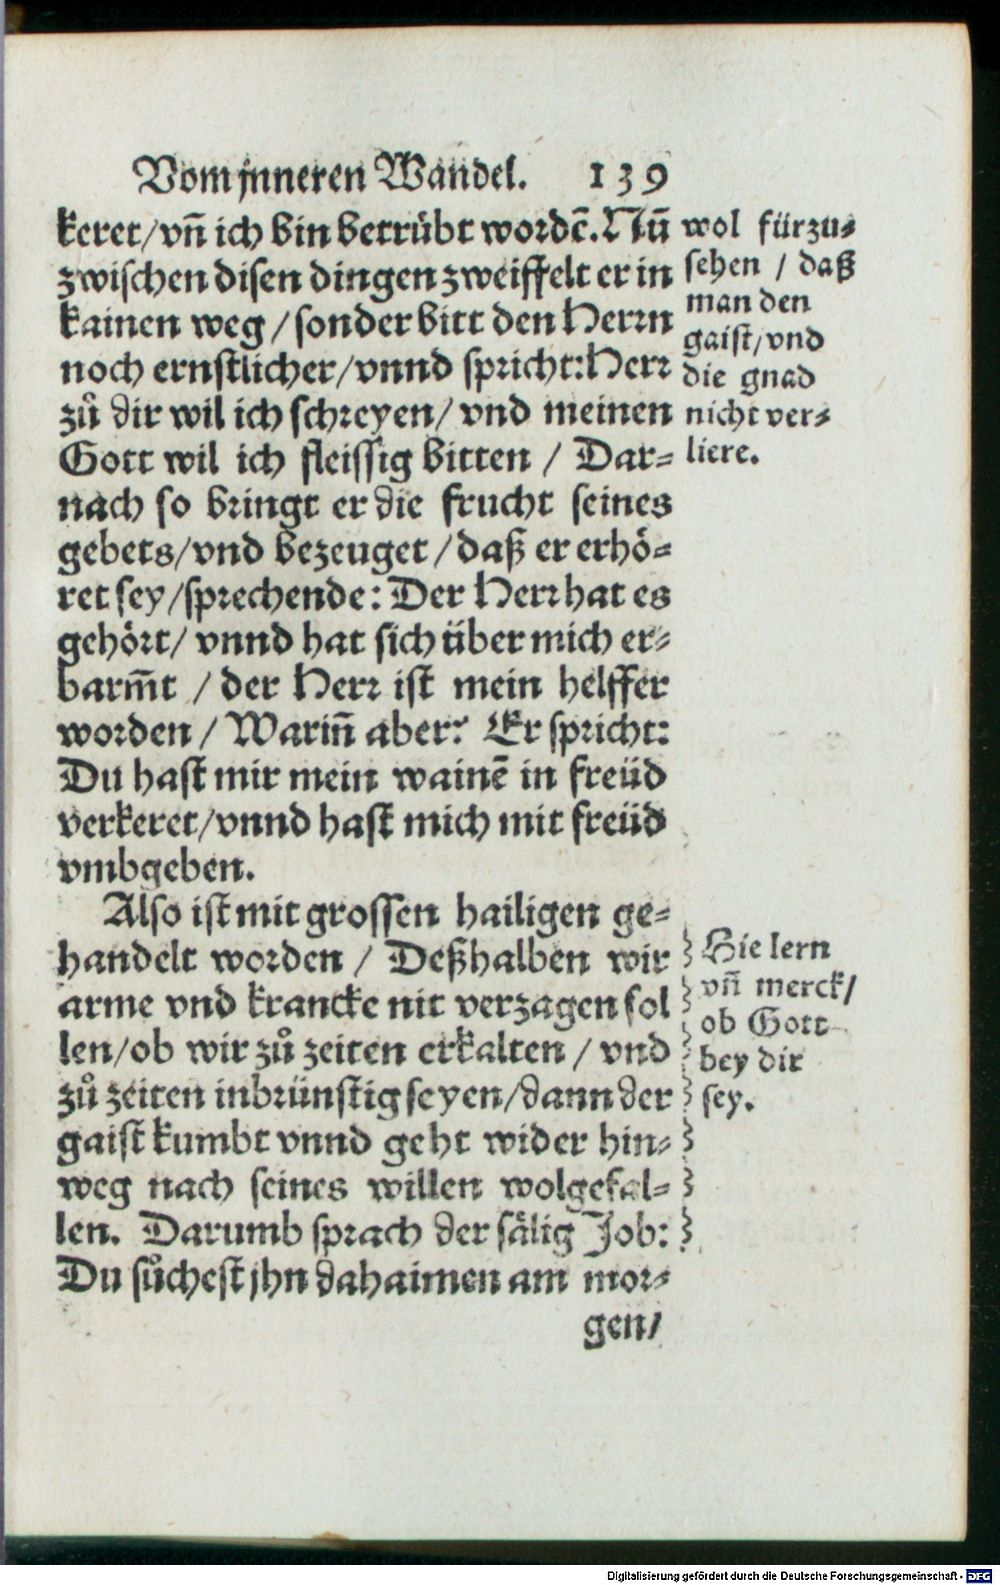 Vom jnneren Wandel. 139
keret/vn̄ ich bin betrübt wordē. Nūn
zwischen disen dingen zweiffelt er in
kainen weg/sonder bitt den Herrn
noch ernstlicher/vnnd spricht: Herr
zů dir wil ich schreyen/vnd meinen
Gott wil ich fleissig bitten/Dar-
nach so bringt er die frucht seines
gebets/vnd bezeuget/daß er erhö-
ret sey/sprechende: Der Herr hat es
gehört/vnnd hat sich über mich er-
barm̄t/der Herr ist mein helffer
worden/Warin̄ aber? Er spricht:
Du hast mir mein wainē in freüd
verkeret/vnnd hast mich mit freüd
vmbgeben.
Also ist mit grossen hailigen ge-
handelt worden/Deßhalben wir
arme vnd krancke nit verzagen sol
len/ob wir zů zeiten erkalten/vnd
zů zeiten inbrünstig seyen/dann der
gaist kumbt vnnd geht wider hin-
weg nach seines willen wolgefal-
len. Darumb sprach der sälig Job:
Du sůchest jhn dahaimen am mor-
gen/
wol fürzu-
sehen/daß
man den
gaist/vnd
die gnad
nicht ver-
liere.
Hie lern
vn̄ merck/
ob Gott
bey dir
sey.
Digitalisierung gefördert durch die Deutsche Forschungsgemeinschaft - DFG